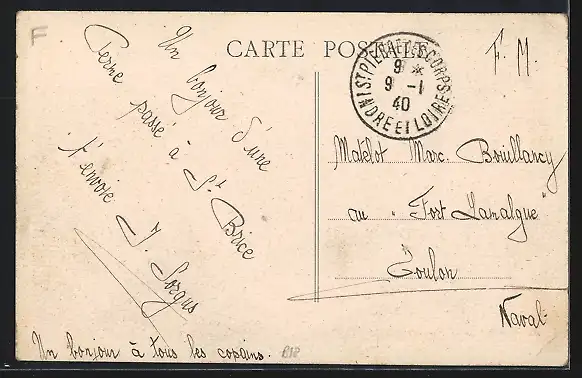 F
CARTE POSTALE
F. M.
ST PIERRE DES CORPS
9 *
9 -1
40
INDRE ET LOIRE
Un bonjour d'une
Perme passé à St Brice
t'envoie
J. Sorgus
Matelot Marc Bouillancy
au "Fort Lamalgue"
Toulon
Naval
Un bonjour à tous les copains.